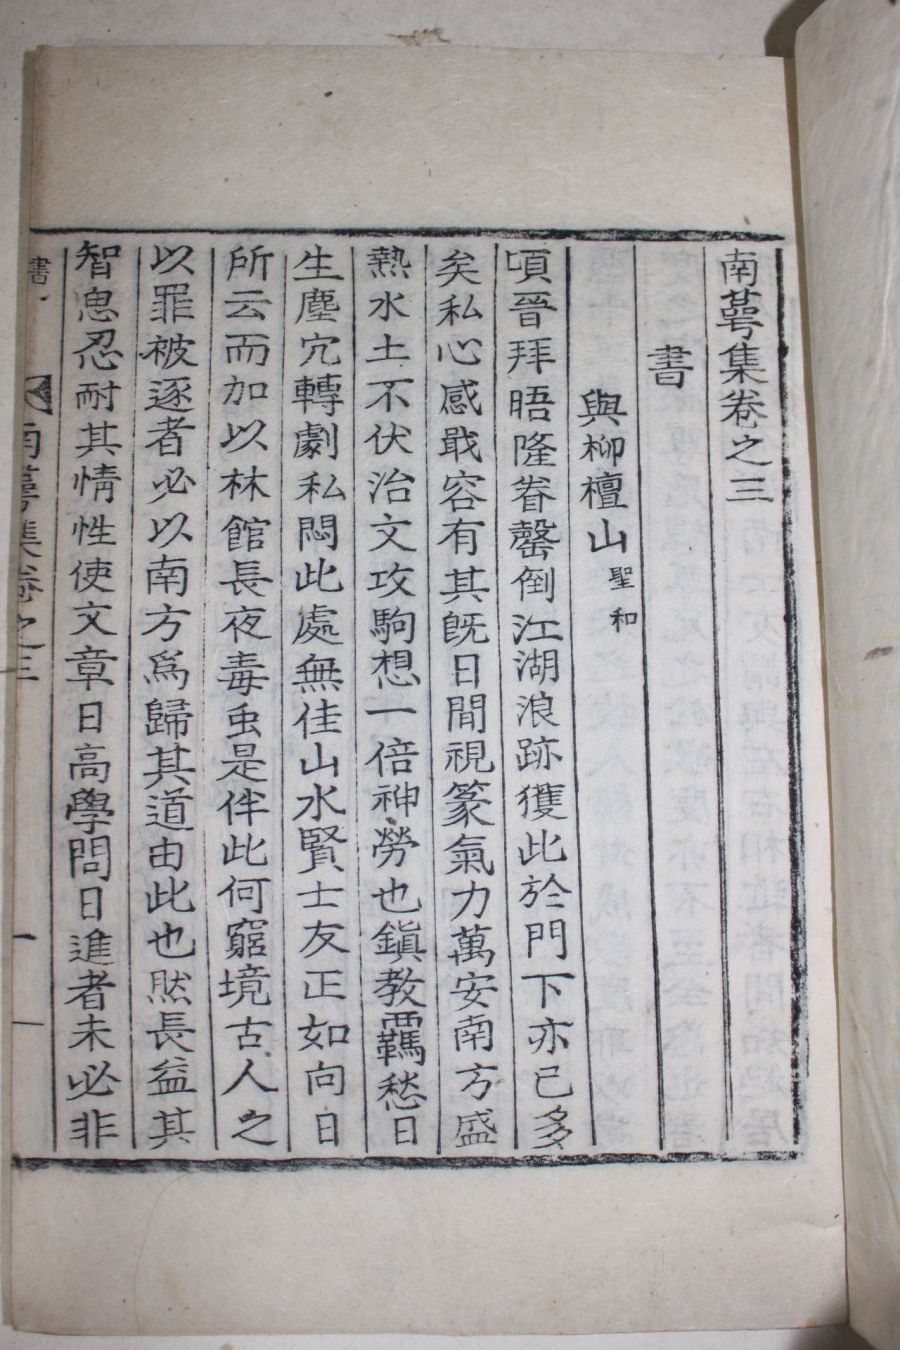 南蕚集卷之三
書
與柳檀山 聖和
頃晉拜晤隆眷罄倒江湖浪跡獲此於門下亦已多
矣私心感戢容有其旣日間視篆氣力萬安南方盛
熱水土不伏治文攻駒想一倍神勞也鎭教羈愁日
生塵宂轉劇私悶此處無佳山水賢士友正如向日
所云而加以林館長夜毒虫是伴此何窮境古人之
以罪被逐者必以南方爲歸其道由此也然長益其
智恖忍耐其情性使文章日高學問日進者未必非
書
南蕚集卷之三
一